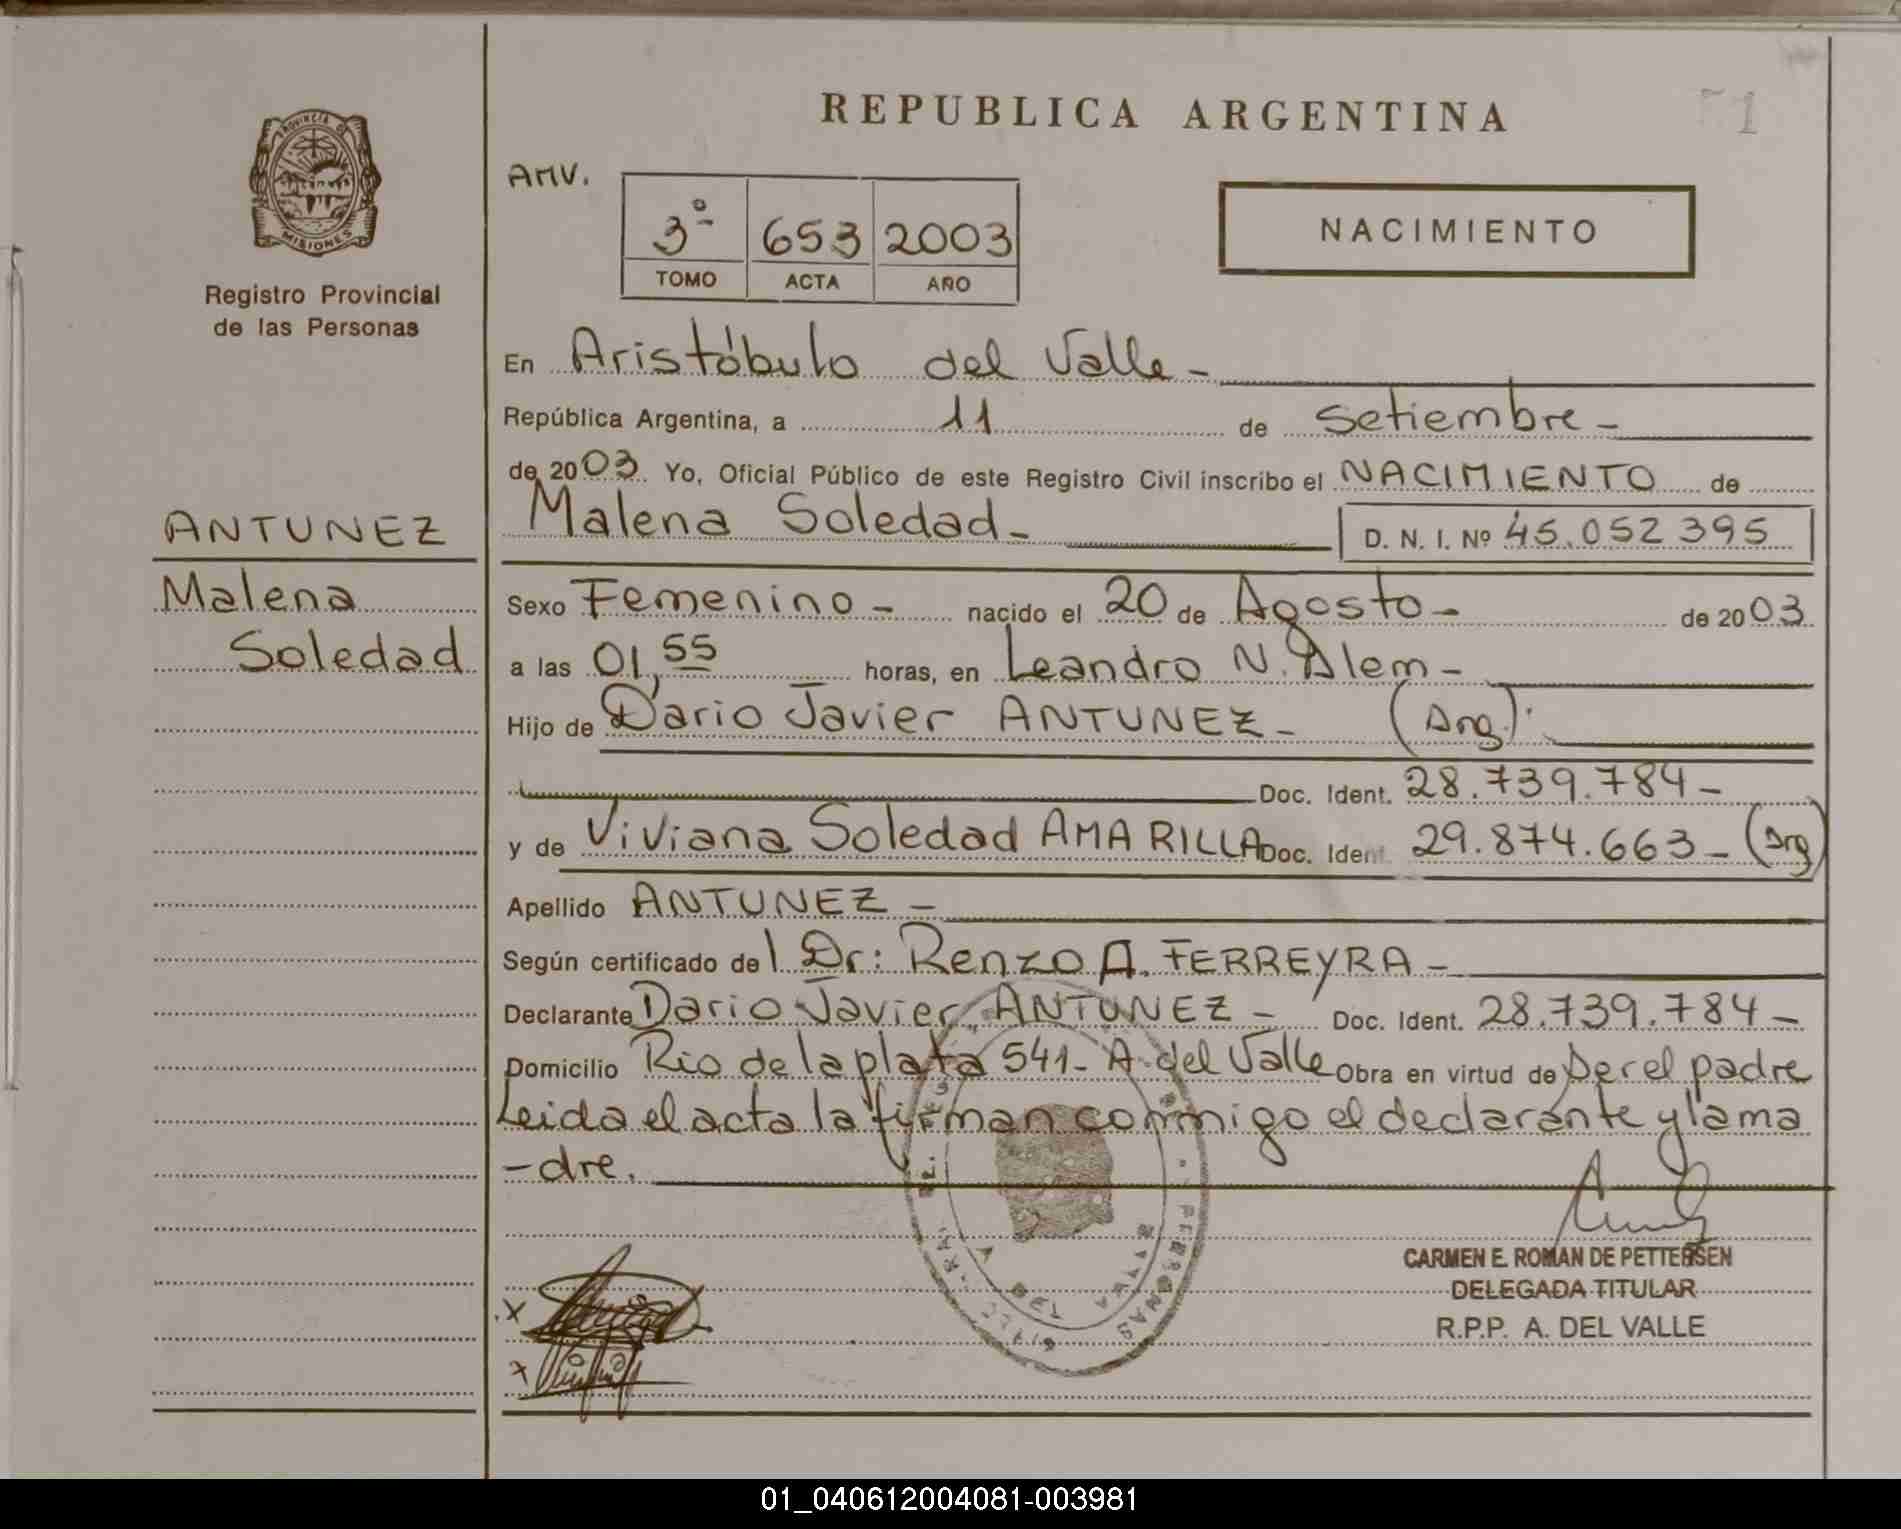 REPUBLICA ARGENTINA
PROVINCIA DE
MISIONES
Registro Provincial
de las Personas
AMV.
3º 653 2003
TOMO ACTA AÑO
NACIMIENTO
En Aristóbulo del Valle -
República Argentina, a 11 de Setiembre -
de 2003. Yo, Oficial Público de este Registro Civil inscribo el NACIMIENTO de
ANTUNEZ
Malena Soledad - D. N. I. Nº 45.052 395
Malena
Soledad
Sexo Femenino - nacido el 20 de Agosto - de 2003
a las 01,55 horas, en Leandro N. Alem -
Hijo de Dario Javier ANTUNEZ - (Arg.)
Doc. Ident. 28.739.784 -
y de Viviana Soledad AMARILLA Doc. Ident 29.874.663 - (Arg)
Apellido ANTUNEZ -
Según certificado del Dr: Renzo A. FERREYRA -
Declarante Dario Javier ANTUNEZ - Doc. Ident. 28.739.784 -
Domicilio Rio de la plata 541 - A. del Valle Obra en virtud de ser el padre
Leida el acta la firman conmigo el declarante y la ma
-dre.
CARMEN E. ROMAN DE PETTERSEN
DELEGADA TITULAR
R.P.P. A. DEL VALLE
01_040612004081-003981